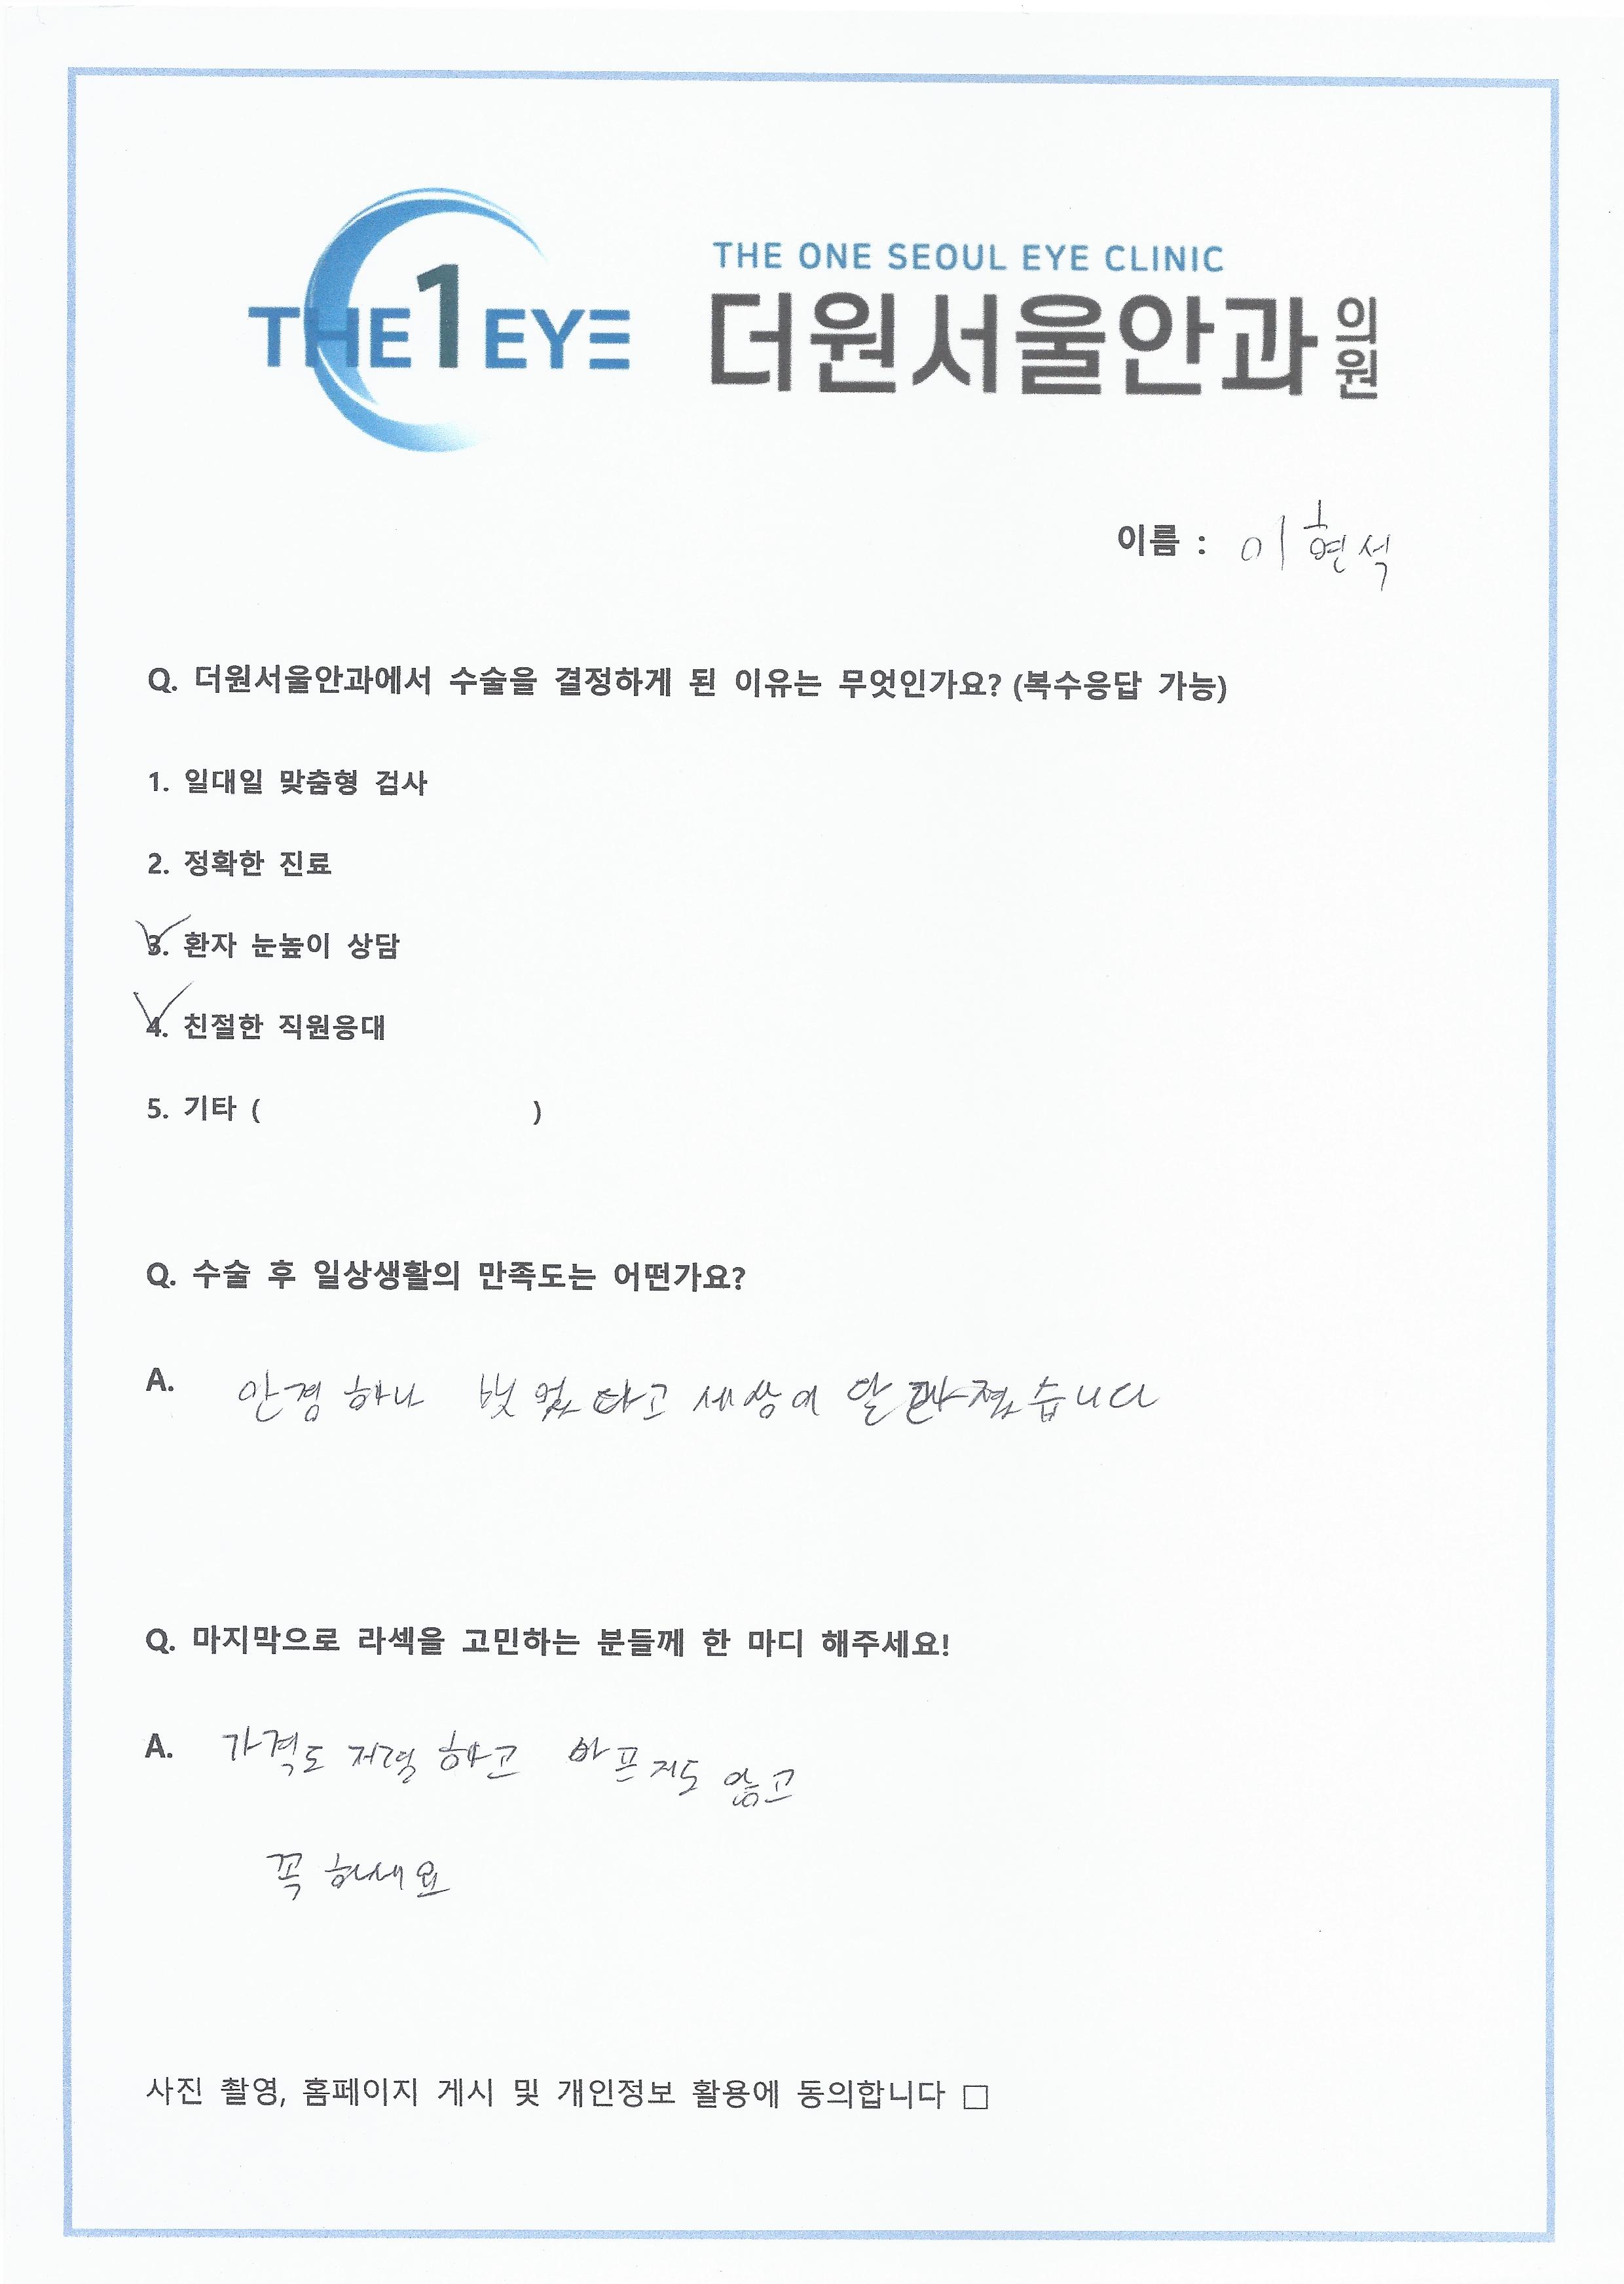 THE 1 EYE
THE ONE SEOUL EYE CLINIC
더원서울안과의원
이름 : 이현석
Q. 더원서울안과에서 수술을 결정하게 된 이유는 무엇인가요? (복수응답 가능)
1. 일대일 맞춤형 검사
2. 정확한 진료
3. 환자 눈높이 상담
4. 친절한 직원응대
5. 기타 ( )
Q. 수술 후 일상생활의 만족도는 어떤가요?
A. 안경 하나 벗었다고 세상이 달라졌습니다
Q. 마지막으로 라섹을 고민하는 분들께 한 마디 해주세요!
A. 가격도 저렴하고 아프지도 않고
꼭 하세요
사진 촬영, 홈페이지 게시 및 개인정보 활용에 동의합니다 □